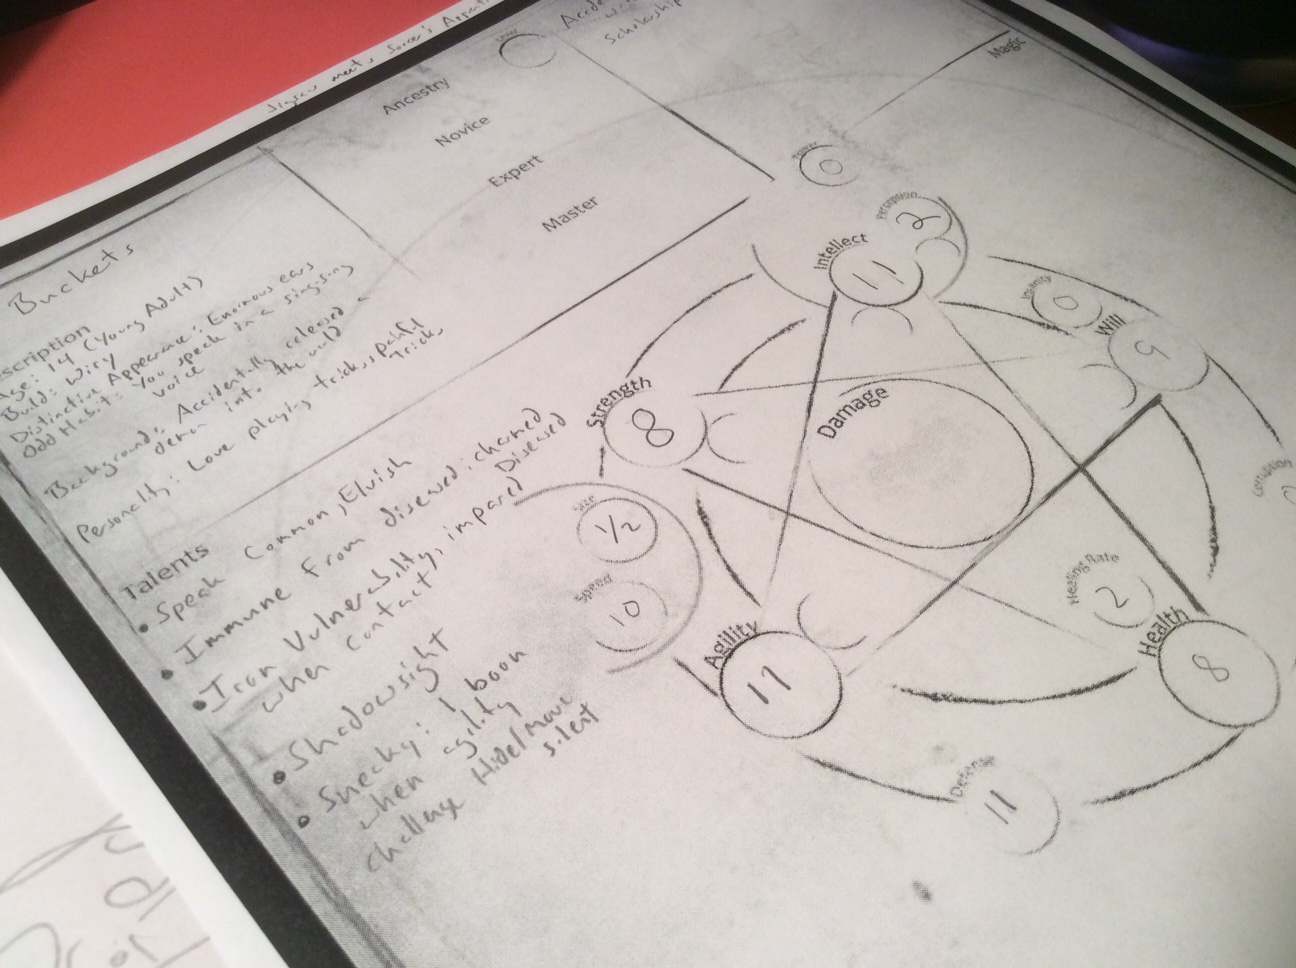 Jigsaw meets Sorcer's
Level
Ancestry
Novice
Expert
Master
Scholarship
Magic
Buckets
scription
Age: 14 (Young Adult)
Build: Wiry
Distinctive Appearance: Enormous ears
Odd Habit: You speak in a sing-song
voice
Background: Accidentally released a
demon into the world
Personality: Love playing tricks, painful
tricks
Talents
• Speak Common, Elvish
• Immune from diseased: charmed
Diseased
• Iron Vulnerability, impared
when contact
• Shadowsight
• Sneaky: 1 boon
when agility
challenge Hide/Move
silent
Power
0
Perception
2
Intellect
11
Insanity
0
Will
9
Strength
8
Damage
Size
1/2
Speed
10
Agility
11
Healing Rate
2
Health
8
Defense
11
Corruption